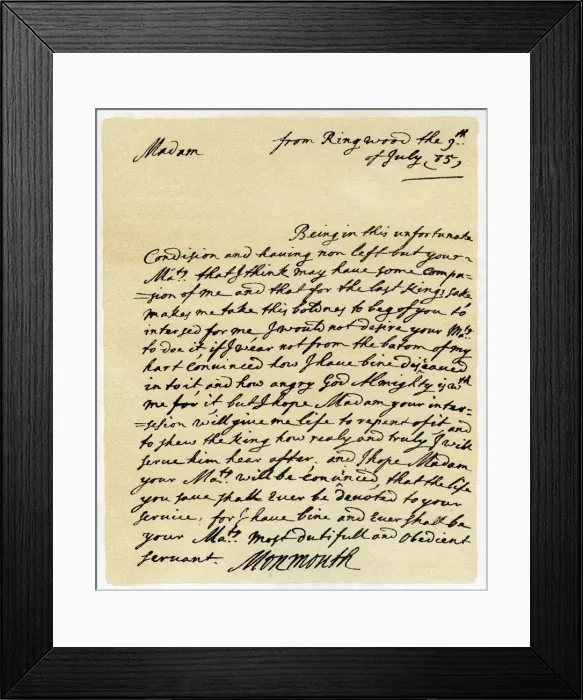 from Ringwood the 9th
Madam
of July (85)
Being in this unfortunate
Condision and having non left but your
Maty. that I think may have some compa-
=sion of me and that for the last Kings sake
makes me take this boldnes to beg of you to
intersed for me I would not desire your Maty.
to don it if I wear not from the botom of my
hart convinced how I have bine disceaved
in to it and how angry God Almighty is wth
me for it but I hope Madam your inter-
=sesion will give me life to repent of it and
to shew the King how realy and truly I will
serve him hear after. and I hope Madam
your Maty. will be convinced that the life
you save shall Ever be devoted to your
service, for I have bine and Ever shall be
your Matys. most dutifull and obedient
servant. Monmouth